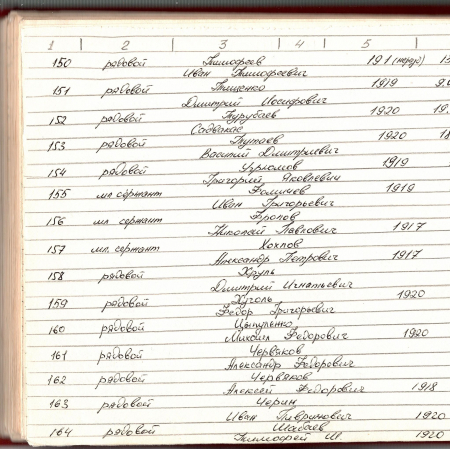 1 2 3 4 5
150 рядовой Тимофеев 191
Иван Тимофеевич
151 рядовой Тищенко 1919
Дмитрий Иосифович
152 рядовой Турубаев 1920 19.
Садвакас
153 рядовой Тутаев 1920 18
Василий Дмитриевич
154 рядовой 1919
Григорий Яковлевич
155 мл сержант Фомичев 1919
Иван Григорьевич
156 мл сержант Фролов
Николай Павлович 1917
157 мл. сержант Хохлов
Александр Петрович 1917
158 рядовой Хруль
Дмитрий Игнатьевич
159 рядовой Хуголь 1920
Федор Григорьевич
160 рядовой Цыпуленко
Михаил Федорович 1920
161 рядовой Червяков
Александр Федорович
162 рядовой Червяков
Алексей Федорович 1918
163 рядовой Черин
Иван 1920
164 рядовой Шабаев
Тимофей Ш. 1920